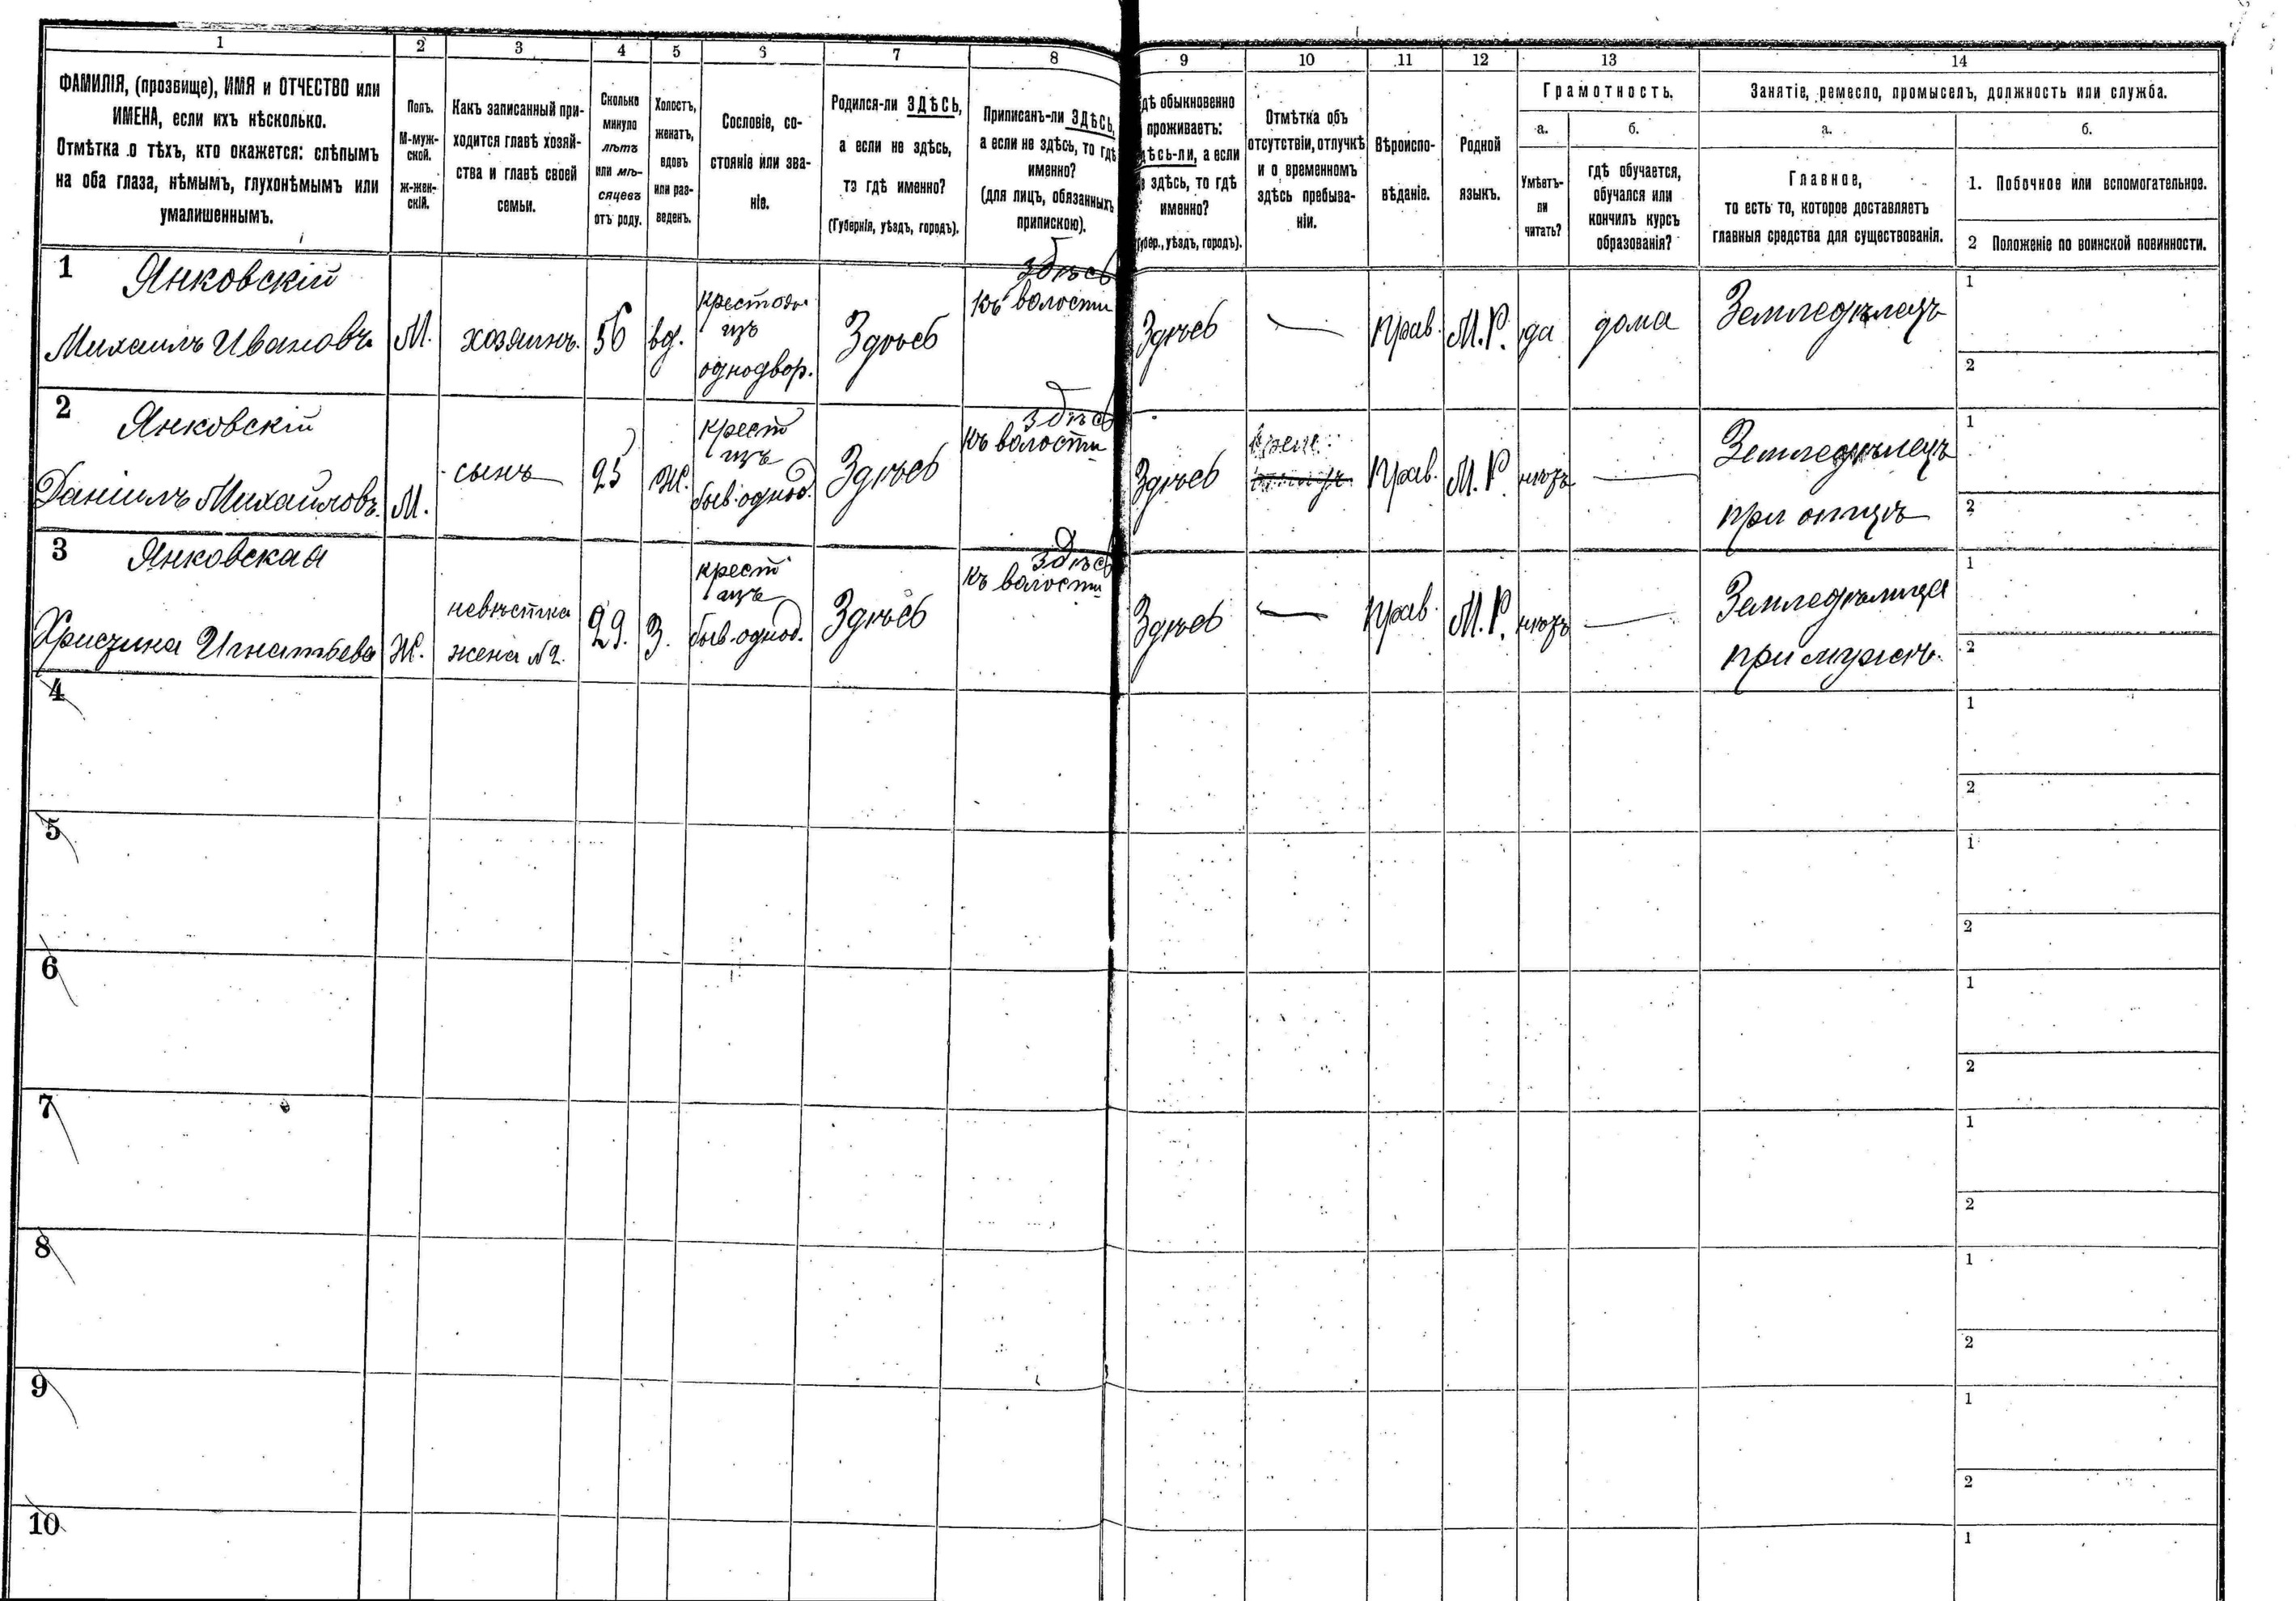 1
2
3
4
5
6
7
8
9
10
11
12
13
14
ФАМИЛІЯ, (прозвище), ИМЯ и ОТЧЕСТВО или
ИМЕНА, если ихъ нѣсколько.
Отмѣтка о тѣхъ, кто окажется: слѣпымъ
на оба глаза, нѣмымъ, глухонѣмымъ или
умалишеннымъ.
Полъ.
М-муж-
ской.
ж-жен-
скій.
Какъ записанный при-
ходится главѣ хозяй-
ства и главѣ своей
семьи.
Сколько
минуло
лѣтъ
или мѣ-
сяцевъ
отъ роду.
Холостъ,
женатъ,
вдовъ
или раз-
веденъ.
Сословіе, со-
стояніе или зва-
ніе.
Родился-ли ЗДѢСЬ,
а если не здѣсь,
то гдѣ именно?
(Губернія, уѣздъ, городъ).
Приписанъ-ли ЗДѢСЬ,
а если не здѣсь, то гдѣ
именно?
(для лицъ, обязанныхъ
припискою).
дѣ обыкновенно
проживаетъ:
дѣсь-ли, а если
здѣсь, то гдѣ
именно?
губер., уѣздъ, городъ).
Отмѣтка объ
отсутствіи, отлучкѣ
и о временномъ
здѣсь пребыва-
ніи.
Вѣроиспо-
вѣданіе.
Родной
языкъ.
Грамотность.
а.
Умѣетъ-
ли
читать?
б.
гдѣ обучается,
обучался или
кончилъ курсъ
образованія?
Занятіе, ремесло, промыселъ, должность или служба.
а.
Главное,
то есть то, которое доставляетъ
главныя средства для существованія.
б.
1. Побочное или вспомогательное.
2 Положеніе по воинской повинности.
1
Янковскій
Михаилъ Ивановъ
М.
хозяинъ.
56
вд.
изъ
однодвор.
Здѣсь
здѣсь
къ волости
Здѣсь
—
Прав.
М.Р.
да
дома
Земледѣлецъ
1
2
2
Янковскій
Даніилъ Михайловъ.
М.
сынъ
25
Ж.
крест
изъ
быв. однод.
Здѣсь
здѣсь
къ волости
Здѣсь
Прав.
М.Р.
нѣтъ
—
Земледѣлецъ
при отцѣ
1
2
3
Янковская
Христина Игнатьева
Ж.
невѣстка
жена №2.
29.
З.
крест
изъ
быв. однод.
Здѣсь
здѣсь
къ волости
Здѣсь
—
Прав.
М.Р.
нѣтъ
—
Земледѣлица
при мужѣ.
1
2
4
1
2
5
1
2
6
1
2
7
1
2
8
1
2
9
1
2
10
1